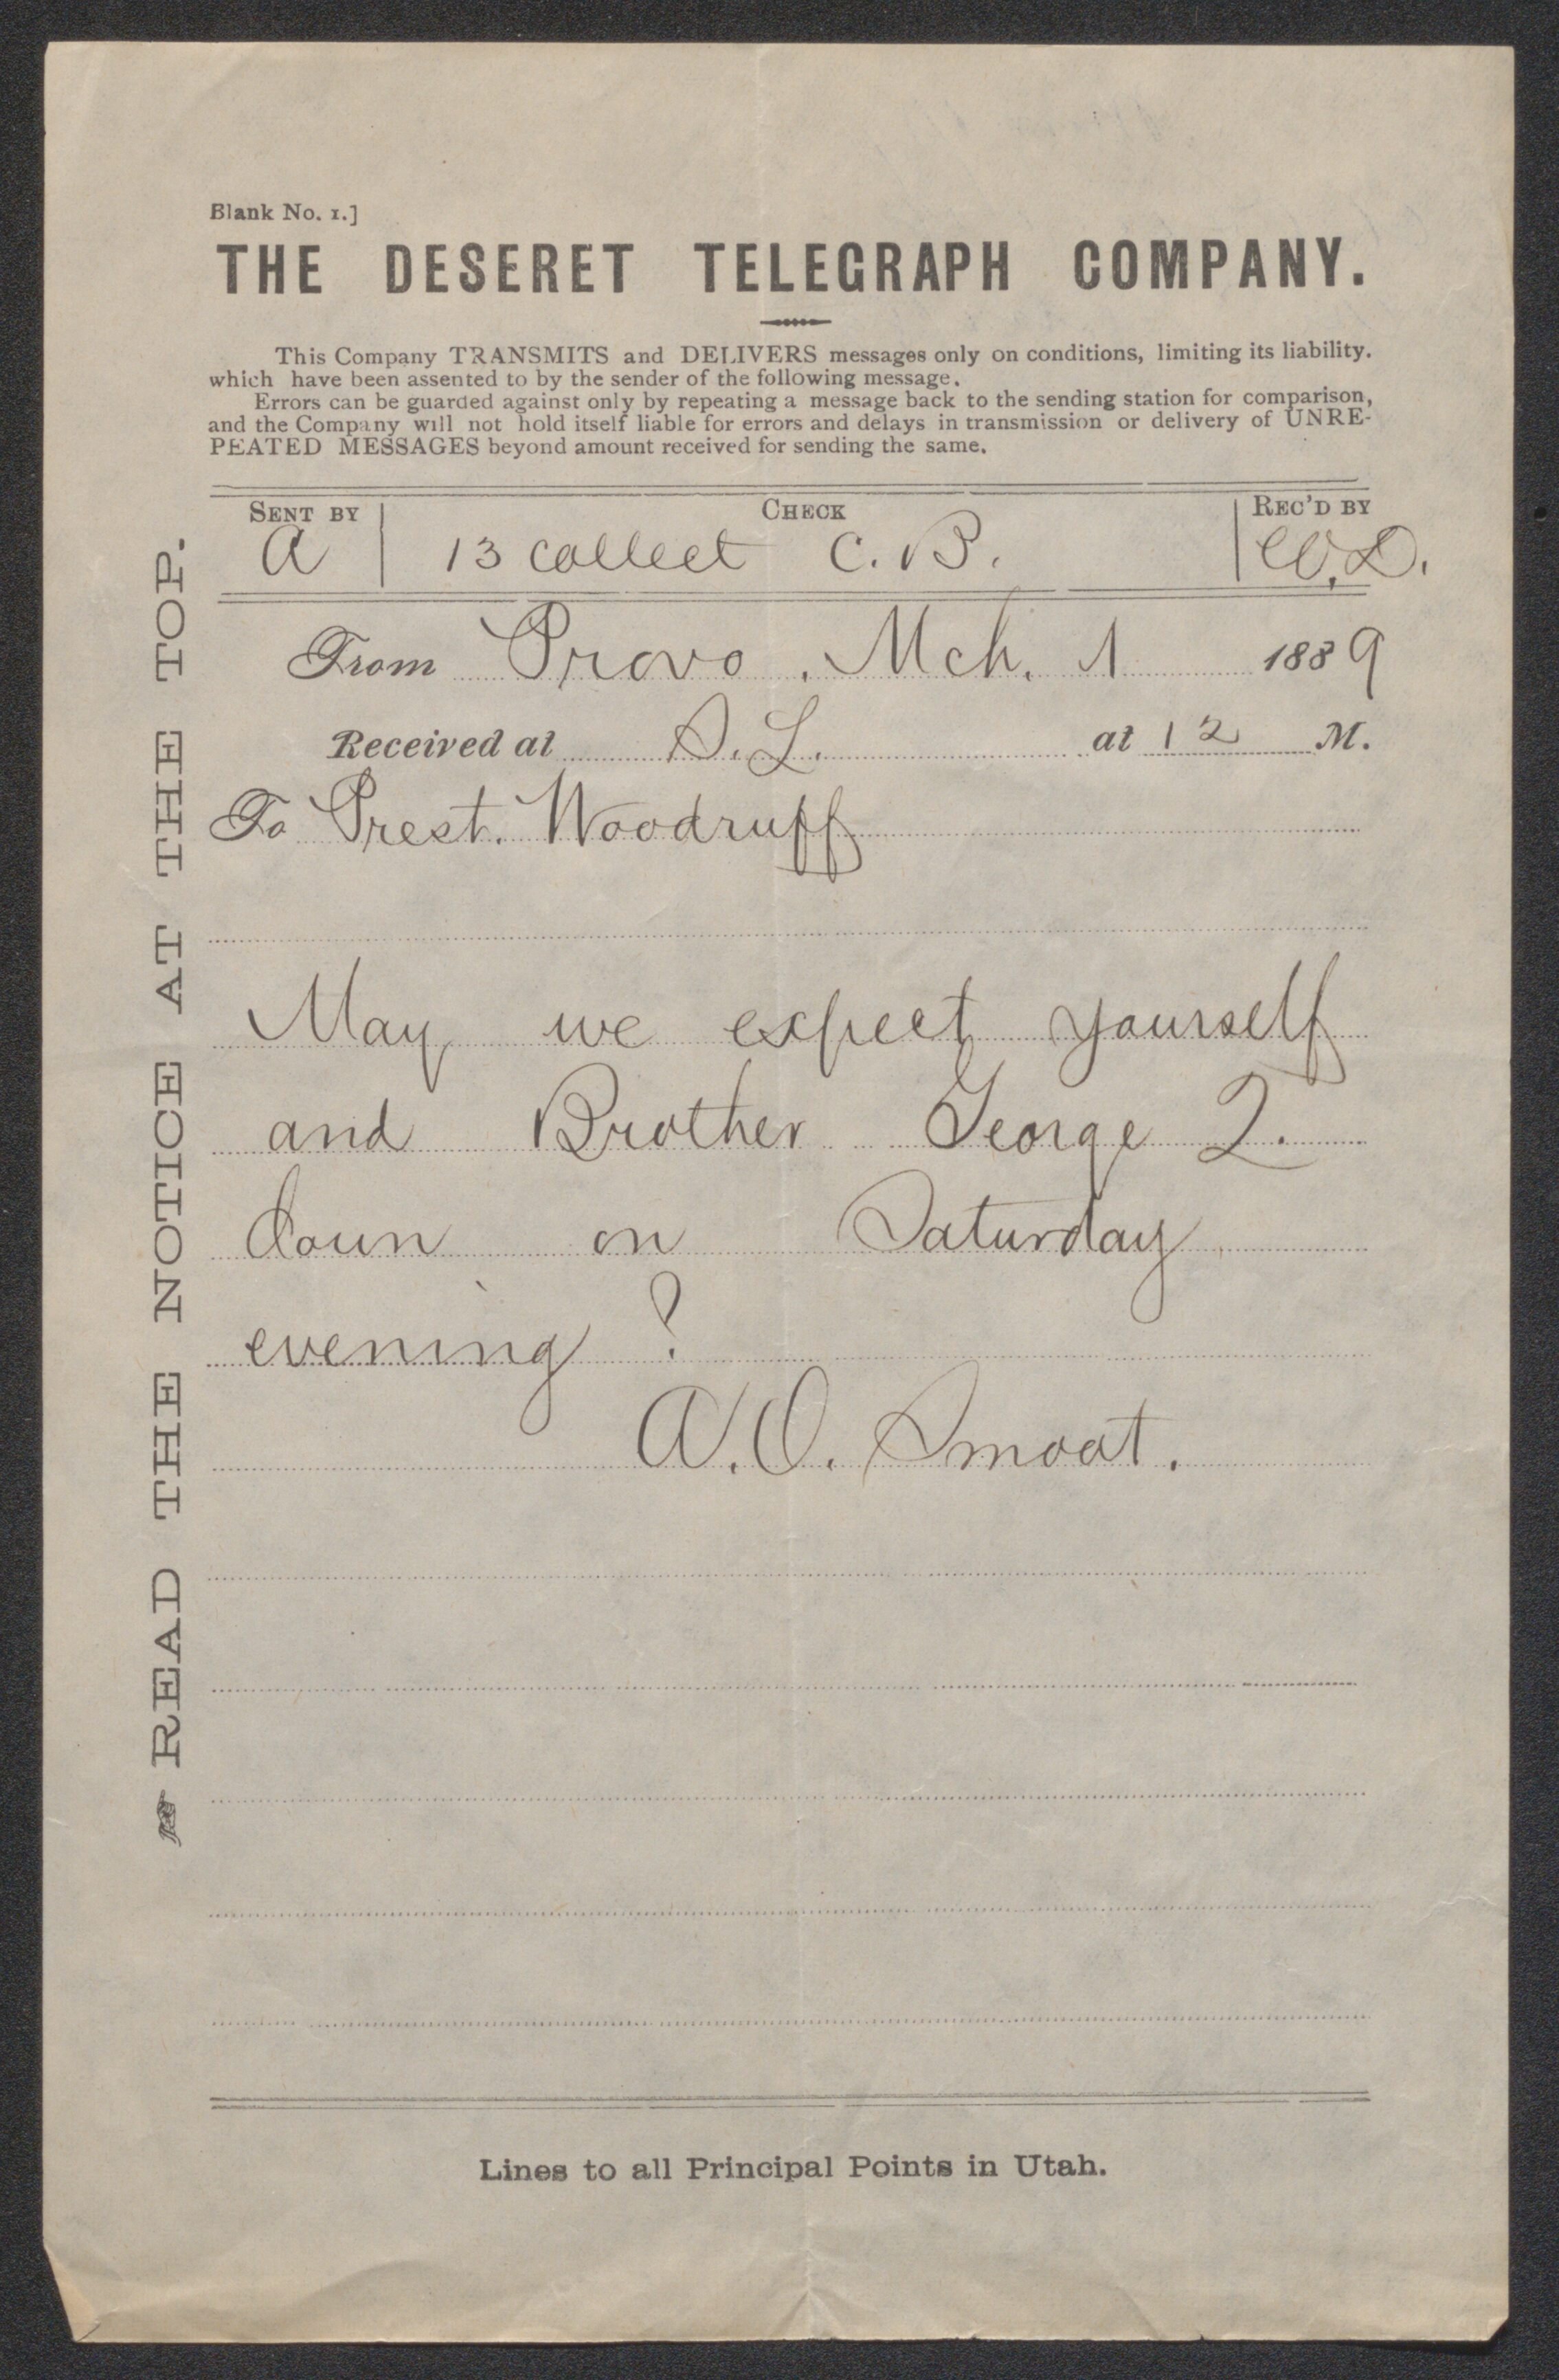 Blank No. 1.]
THE DESERET TELEGRAPH COMPANY.
This Company TRANSMITS and DELIVERS messages only on conditions, limiting its liability.
which have been assented to by the sender of the following message.
Errors can be guarded against only by repeating a message back to the sending station for comparison,
and the Company will not hold itself liable for errors and delays in transmission or delivery of UNRE-
PEATED MESSAGES beyond amount received for sending the same.
SENT BY CHECK REC'D BY
A 13 collect C. B. W.D.
From Provo. Mch. 1 1889
Received at S.L. at 12 M.
To Prest. Woodruff
May we expect yourself
and Brother George Q.
down on Saturday
evening?
A.O. Smoot.
Lines to all Principal Points in Utah.
READ THE NOTICE AT THE TOP.